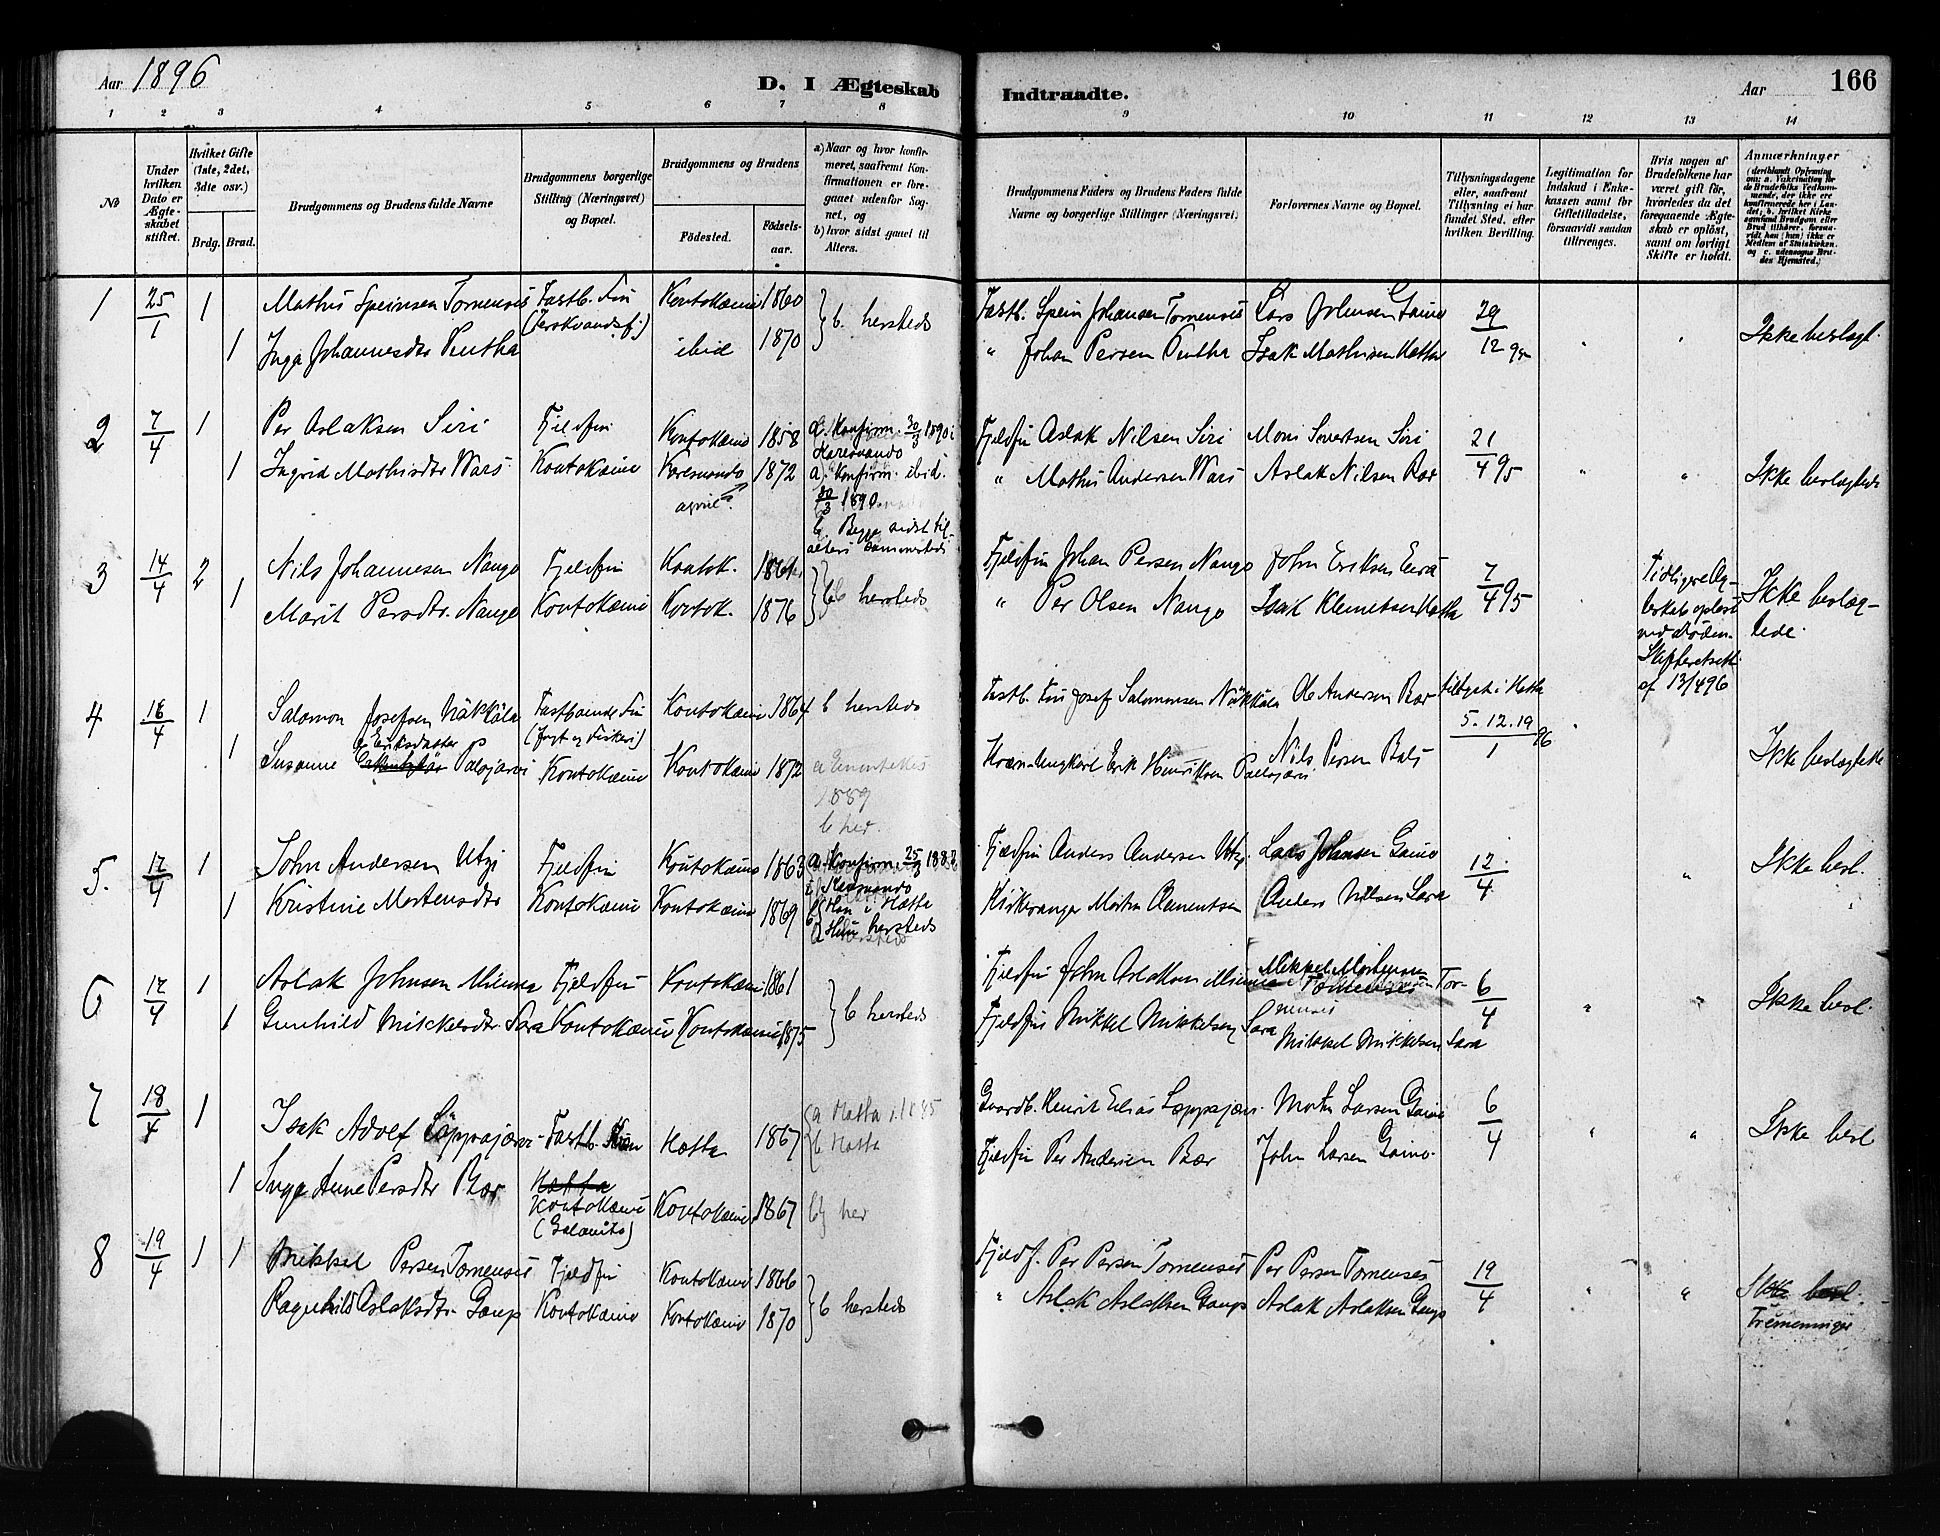 Aar 1896
D. I Ægteskab
Indtraadte.
Aar
166
1 2 3 4 5 6 7 8 9 10 11 12 13 14
No
Under hvilken Dato er Ægteskabet stiftet.
Hvilket Gifte (1ste, 2det, 3die osv.)
Brdg. Brud.
Brudgommens og Brudens fulde Navne
Brudgommens borgerlige Stilling (Næringsvei) og Bopæl.
Brudgommens og Brudens
Födested.
Födsels-aar.
a) Naar og hvor konfirmeret, saafremt Konfirmationen er foregaaet udenfor Sognet, og
b) hvor sidst gaaet til Alters.
Brudgommens Faders og Brudens Faders fulde Navne og borgerlige Stillinger (Næringsvei)
Forlovernes Navne og Bopæl.
Tillysningsdagene eller, saafremt Tillysning ei har fundet Sted, efter hvilken Bevilling.
Legitimation for Indskud i Enkekassen samt for Giftetilladelse, forsaavidt saadan tiltrænges.
Hvis nogen af Brudefolkene har været gift för, hvorledes da det foregaaende Ægteskab er oplöst, samt om lovligt Skifte er holdt.
Anmærkninger
1 25/1 1 Mathis Speinsen Tornensis Fastb. Fin Koutokæino 1860 } b. hersteds Fastb. Spein Johansen Tornensis Lars Johnsen Gaino 29/12 95 Ikke beslægt.
1 Inga Johannesdtr ibid 1870 " Johan Persen Isak Mathisen Hætta
2 7/4 1 Per Aslaksen Siri Fjeldfin Koutokæino 1858 a. Konfirm. 30/3 1890 i Karesuando Fjeldfin Aslak Nilsen Siri Mons Sivertsen Siri 21/4 95 " " Ikke beslægtede
1 Ingrid Mathisdtr Wars Koutokæino Karesuando 1872 a. Konfirm. ibid. 30/3 1890 " Mathis Andersen Wars Aslak Nilsen Bær
b. Begge sidst til alters sammesteds
3 14/4 2 Nils Johannesen Nango Fjeldfin Koutok. } b hersteds Fjeldfin Johan Persen Nango John Eriksen Eira 7/4 95 Tidligere Ægteskab opløst ved Døden. Skifteretsatt. af 13/4 96 Ikke beslægtede.
1 Marit Persdtr. Nango Koutokæino Koutok. 1876 " Per Olsen Nango Isak Klemetsen Hætta
4 16/4 1 Salomon Josefsen Näkkälä Fastboende Fin Koutokæino 1864 b hersteds Fastb. Fin Josef Salomonsen Näkkälä Ole Andersen Bær 5. 12. 19/1 96 Ikke beslægtede
1 Susanne Eriksdatter Palojärvi Koutokæino Koutokæino 1872 a Enontekis 1889 b her. Erik Henriksen Palojärvi Nils Persen Bals
5. 17/4 1 John Andersen Utzi Fjeldfin Koutokæino 1863 a. Konfirm. 25/3 Fjeldfin Anders Andersen Utzi Lars Johnsen Gaino 12/4 " Ikke besl.
1 Kristine Mortensdtr Koutokæino Koutokæino 1869 b Han i Hætta Hun hersteds Kirkesanger Morten Clemetsen Anders Nilsen Sara
6 17/4 1 Aslak Johnsen Fjeldfin Koutokæino 1861 } b hersteds Fjeldfin John Aslaksen Mikkel Mortensen Tornensis 6/4 " " Ikke besl.
1 Gunhild Mikkelsdtr. Sara Koutokæino Koutokæino 1875 Fjeldfin Mikkel Mikkelsen Sara Mikkel Mikkelsen Sara
7 18/4 1 Isak Adolf Lappajærvi Fastb. Hætta 1867 a Hætta i 1885 b Hætta Gaardb. Henrik Elias Lappajær. Morten Larsen Gaino 6/4 " " Ikke besl
1 Inga Anne Persdtr Bær Koutokæino Koutokæino 1867 b) her Fjeldfin Per Andersen Bær John Larsen Gaino.
8 19/4 1 1 Mikkel Persen Tornensis Fjeldfin Koutokæino 1866 } b hersteds Fjeldf. Per Persen Tornensis Per Persen Tornensis 19/4 " " Ikke besl. Tremenninger
Ragnhild Aslaksdtr. Gaup Koutokæino Koutokæino 1870 " Aslak Aslaksen Gaup Aslak Aslaksen Gaup